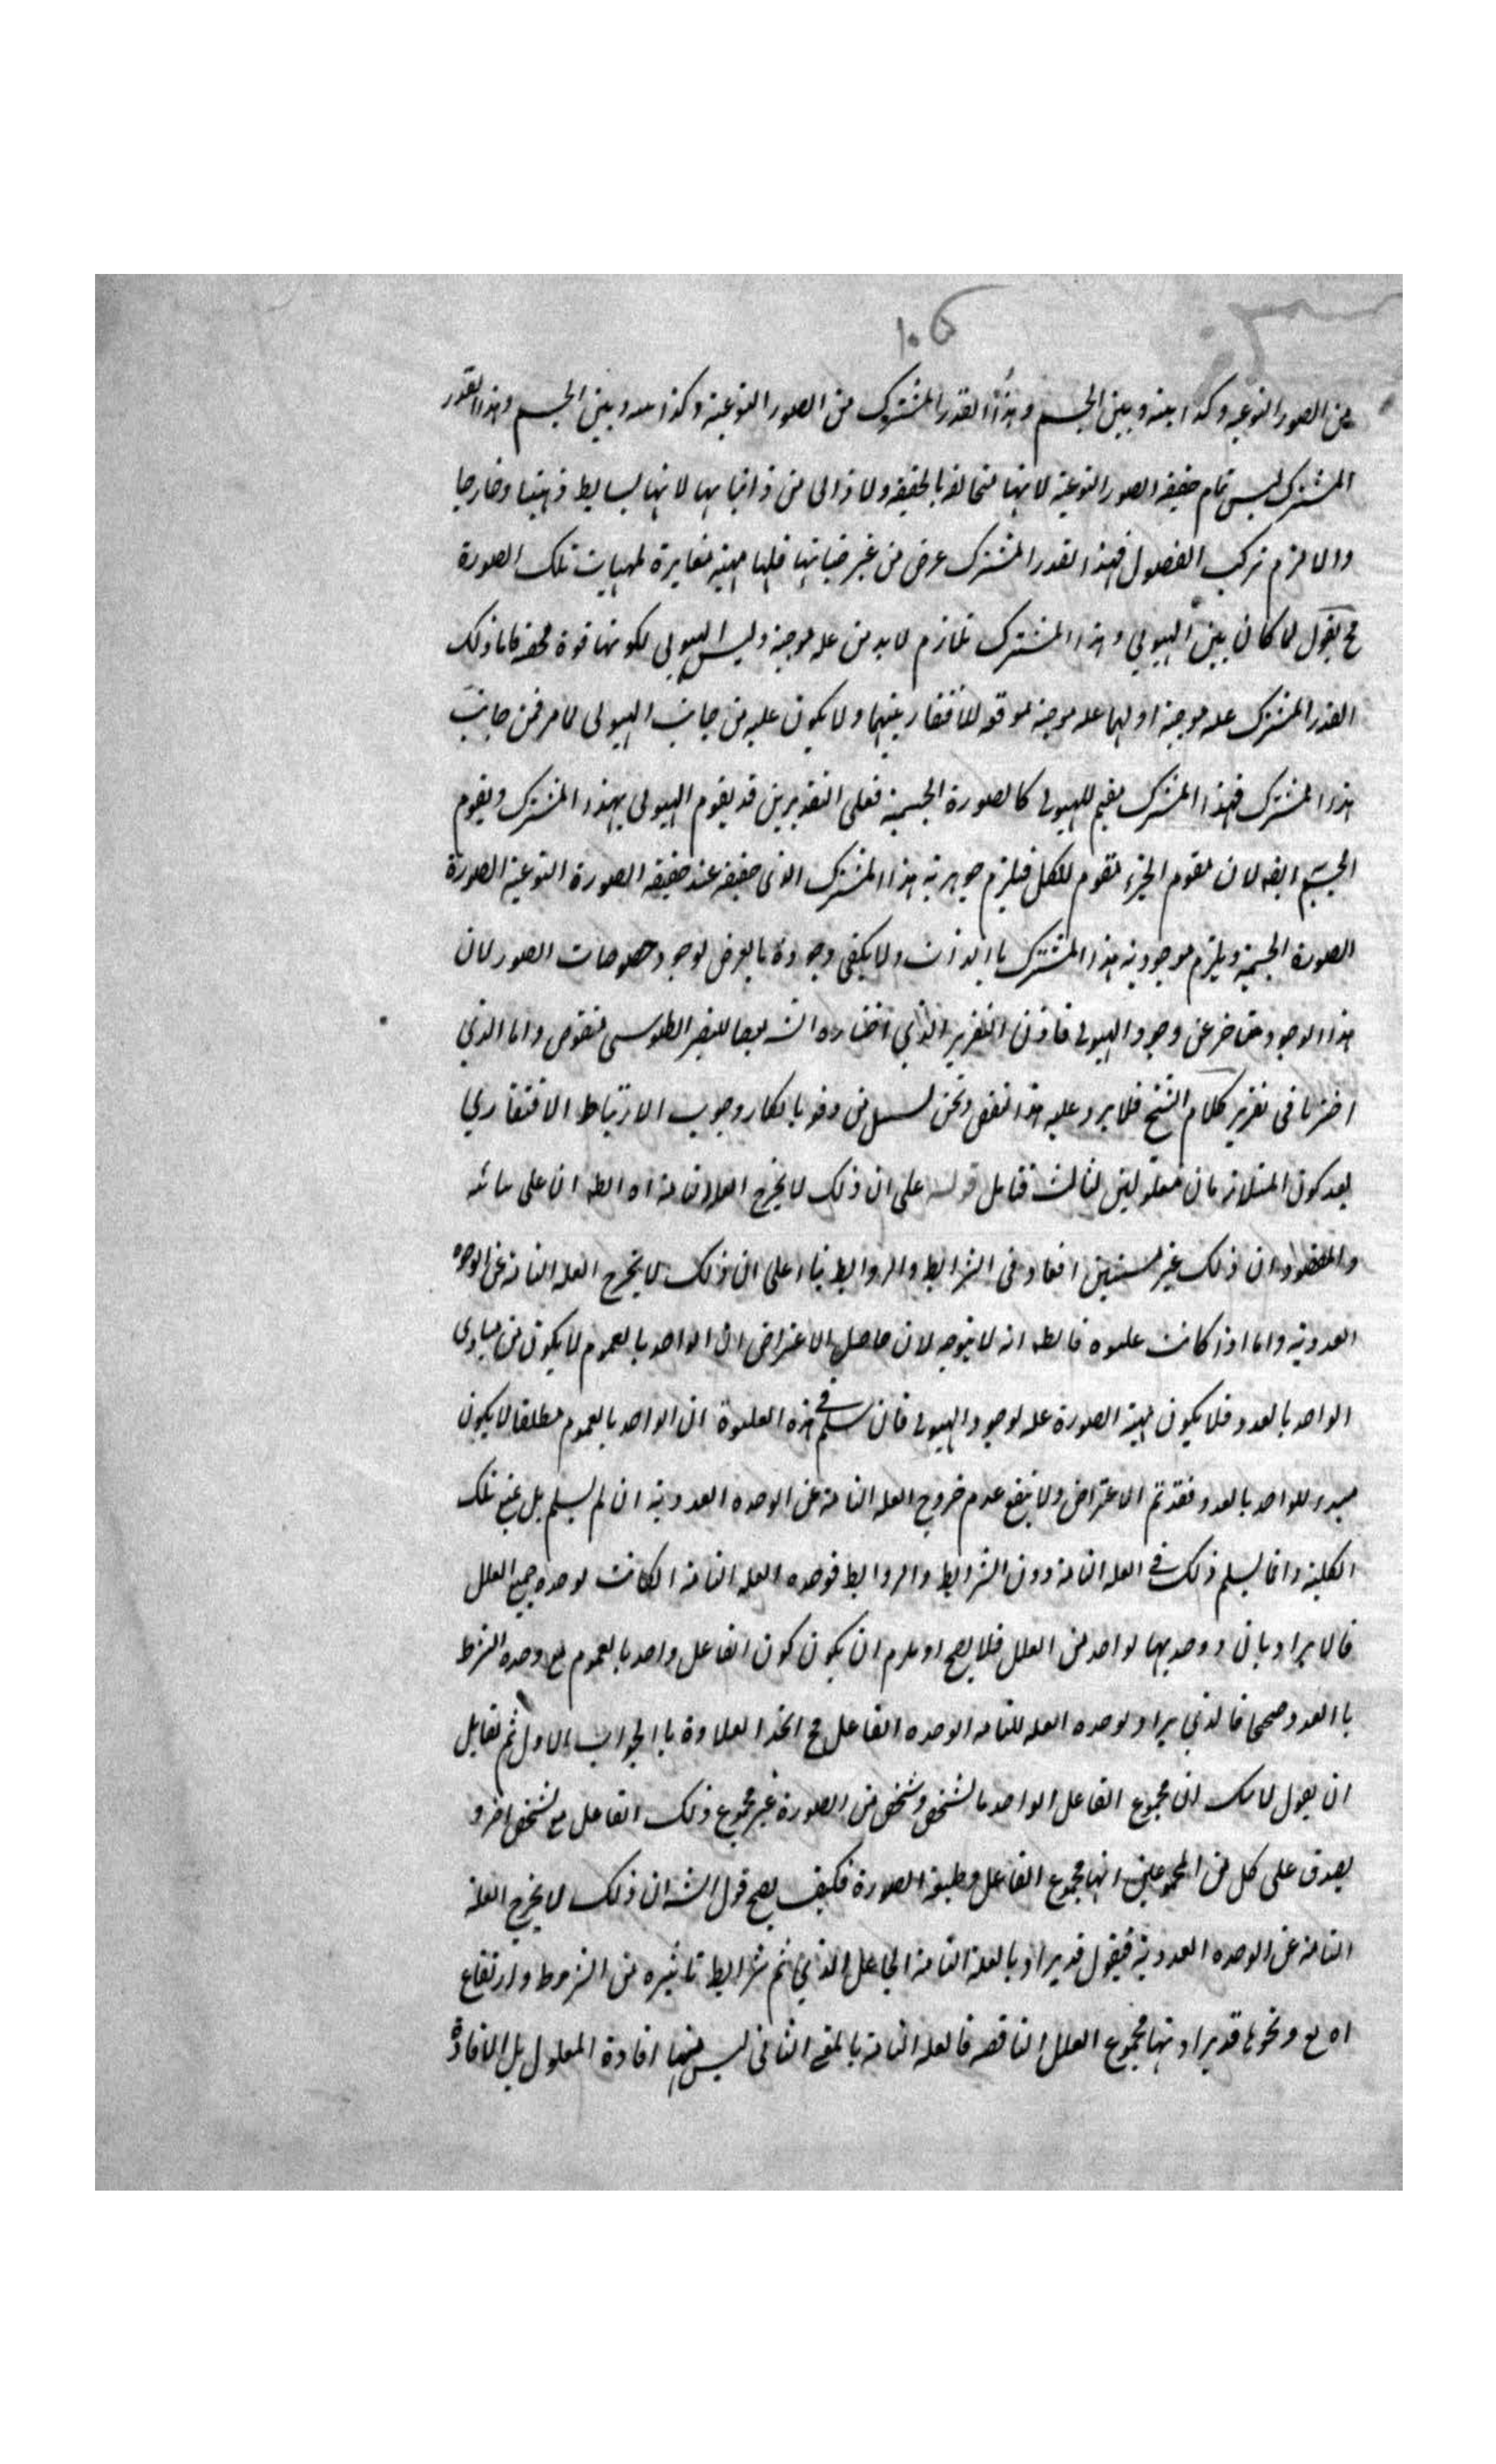 ١٠٥
من الصور النوعيه وكذا بينه وبين الجسم وهذا القدر المشترك من الصور النوعية وكذا وبين الجسم وهذا القدر
المشترك ليس تمام حقيقه الصور النوعية لانها متخالفه بالحقيقه ولا ذاتى من ذاتياتها لانها بسايط ذهنيا وخارجيا
والا لزم تركب الفصول فهذا القدر المشترك عرض من غير ذاتياتها فلها مهية مغايرة لمهيات تلك الصورة
ح نقول لما كان بين الهيولي وهذا المشترك تلازم لا بد من عله موجبة وليس الهيولى لكونها قوة محضه فاما ذلك
القدر المشترك عله موجبة اولهما عله موجبة موقعه للافتقار بينهما ولا يكون عليه من جانب الهيولى لما مر فمن جانب
هذا المشترك فهذا المشترك مقيم للهيولى كالصورة الجسمية فعلى التقديرين قد يقوم الهيولى بهذا المشترك ويقوم
الجسم ايضه لان مقوم الجزء مقوم للكل فيلزم جوهرية هذا المشترك الذى حقيقه عند حقيقه الصورة النوعية الصورة
الصورة الجسمية ويلزم موجودية هذا المشترك باالذات ولا يكفى وجوده بالعرض لوجود خصوصات الصور لان
هذا الوجود متاخر عن وجود الهيولى فاذن التقرير الذي اختاره الش تبعا للنصير الطوسى منقوض واما الذي
اخترنا فى تقرير كلام الشيخ فلا يرد عليه هذا النقض ونحن من وفو بانكار وجوب الارتباط الافتقاري
بعد كون المتلازمان معلولين لثالث فتامل قوله على ان ذلك لا يخرج العلة التامة اه الظه ان على
والمقصود ان ذلك غير افاد فى الشرايط والروابط بناء على ان ذلك لا يخرج العله التامة عن الوحده
العددية واما اذا كانت علاوه فالظه انه لا يتوجه لان حاصل الاعتراض ان الواحد بالعموم لا يكون من مبادى
الواحد بالعدد فلا يكون مهية الصورة عله لوجود الهيولى فان سلم فى هذه العلاوة ان الواحد بالعموم مطلقا لا يكون
مبدء للواحد بالعدد فقد تم الاعتراض ولا ينفع عدم خروج العله التامة عن الوحده العددية ان لم يسلم بل يمنع تلك
الكلية وانما يسلم ذلك فى العله التامة دون الشرايط والروابط فوحده العله التامة الكانت لوحده جميع العلل
فالايراد بان ووحديها لواحد من العلل فلا يصح ان يكون كون الفاعل واحد بالعموم مع وحده الشرط
باالعدد صحيحا فالذي يراد لوحده العله للتامه الوحده الفاعل ح اتحد العلاوة باالجواب الاول ثم لقايل
ان يقول لا شك ان مجموع الفاعل الواحد بالشخص وشخص من الصورة غير مجموع ذلك الفاعل مع شخص اخر و
يصدق على كل من المجموعين انها مجموع الفاعل وطبيعة الصورة فكيف يصح قول الش ان ذلك لا يخرج العلة
التامة عن الوحده العددية فيقول قد يراد بالعلة التامة الجاعل الذي تم شرايط تاثيره من الشروط وارتفاع
ونحوها قد يراد بها مجموع العلل الناقصه فالعله التامة بالمعنى الثانى ليس منها افادة المعلول بل الافادة